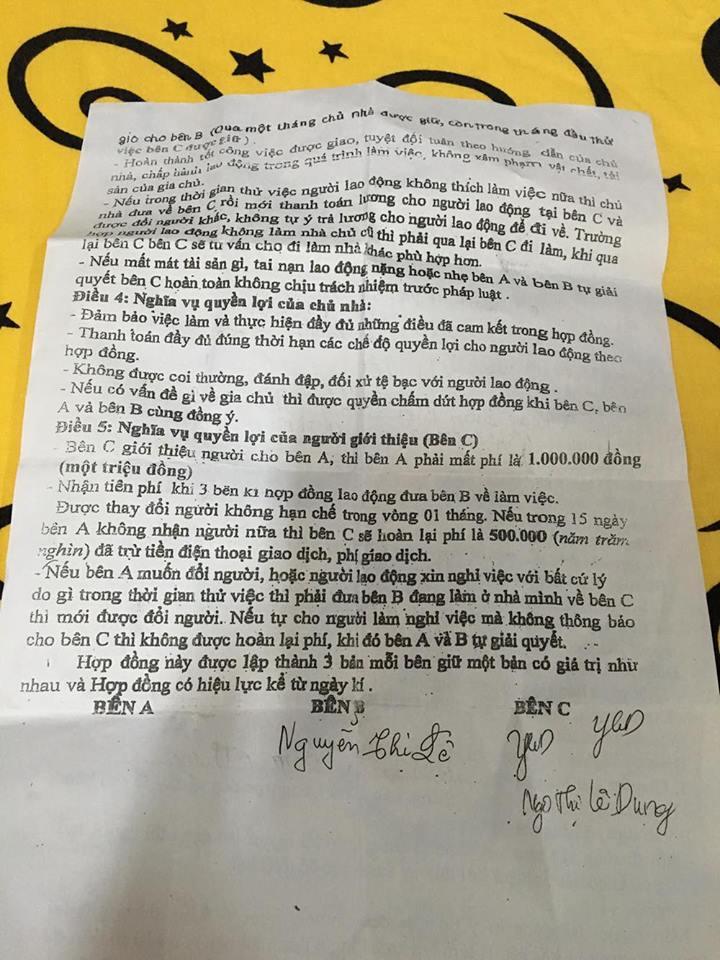 giờ cho bên B (Qua một tháng chủ nhà được giữ, còn trong tháng đầu thử
việc bên C được giữ).
- Hoàn thành tốt công việc được giao, tuyệt đối tuân theo hướng dẫn của chủ
nhà, chấp hành lao động trong quá trình làm việc, không xâm phạm vật chất, tài
sản của gia chủ.
- Nếu trong thời gian thử việc người lao động không thích làm việc nữa thì chủ
nhà đưa về bên C rồi mới thanh toán lương cho người lao động tại bên C và
được đổi người khác, không tự ý trả lương cho người lao động để đi về. Trường
hợp người lao động không làm nhà chủ cũ thì phải qua lại bên C đi làm, khi qua
lại bên C bên C sẽ tư vấn cho đi làm nhà khác phù hợp hơn.
- Nếu mất mát tài sản gì, tai nạn lao động nặng hoặc nhẹ bên A và bên B tự giải
quyết bên C hoàn toàn không chịu trách nhiệm trước pháp luật .
Điều 4: Nghĩa vụ quyền lợi của chủ nhà:
- Đảm bảo việc làm và thực hiện đầy đủ những điều đã cam kết trong hợp đồng.
- Thanh toán đầy đủ đúng thời hạn các chế độ quyền lợi cho người lao động theo
hợp đồng.
- Không được coi thường, đánh đập, đối xử tệ bạc với người lao động .
- Nếu có vấn đề gì về gia chủ thì được quyền chấm dứt hợp đồng khi bên C, bên
A và bên B cùng đồng ý.
Điều 5: Nghĩa vụ quyền lợi của người giới thiệu (Bên C)
- Bên C giới thiệu người cho bên A, thì bên A phải mất phí là 1.000.000 đồng
(một triệu đồng)
- Nhận tiền phí khi 3 bên kí hợp đồng lao động đưa bên B về làm việc.
Được thay đổi người không hạn chế trong vòng 01 tháng. Nếu trong 15 ngày
bên A không nhận người nữa thì bên C sẽ hoàn lại phí là 500.000 (năm trăm
nghìn) đã trừ tiền điện thoại giao dịch, phí giao dịch.
- Nếu bên A muốn đổi người, hoặc người lao động xin nghỉ việc với bất cứ lý
do gì trong thời gian thử việc thì phải đưa bên B đang làm ở nhà mình về bên C
thì mới được đổi người. Nếu tự cho người làm nghỉ việc mà không thông báo
cho bên C thì không được hoàn lại phí, khi đó bên A và B tự giải quyết.
Hợp đồng này được lập thành 3 bản mỗi bên giữ một bản có giá trị như
nhau và Hợp đồng có hiệu lực kể từ ngày kí .
BÊN A BÊN B BÊN C
Nguyễn Thị Lê
Ngô Thị Lê Dung